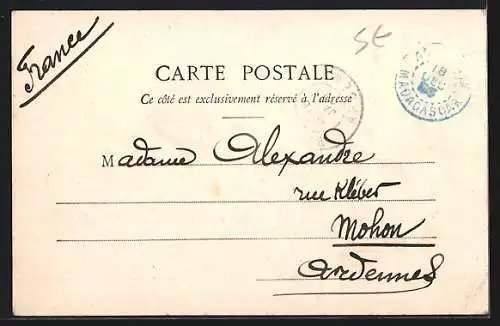 France
CARTE POSTALE
Ce côté est exclusivement réservé à l'adresse
18
MADAGASCAR
Madame Alexandre
rue Kléber
Mohon
Ardennes